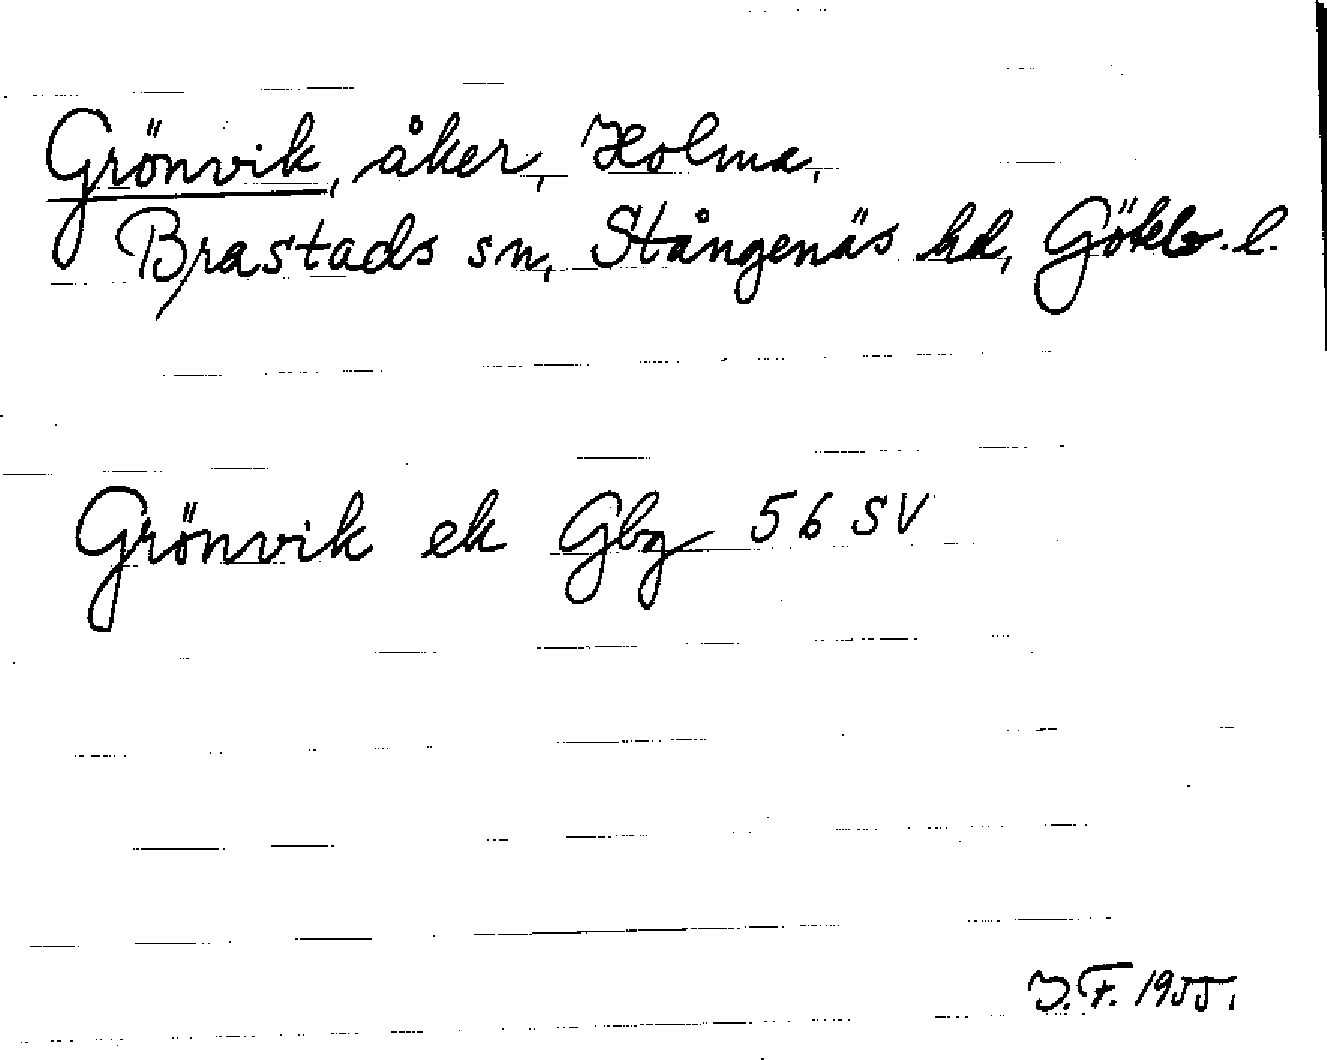 Grönvik, åker, Holma,
Brastads sn, Stångenäs hd, Göteb. l.
Grönvik ek Gbg 56 SV
J.F. 1955.